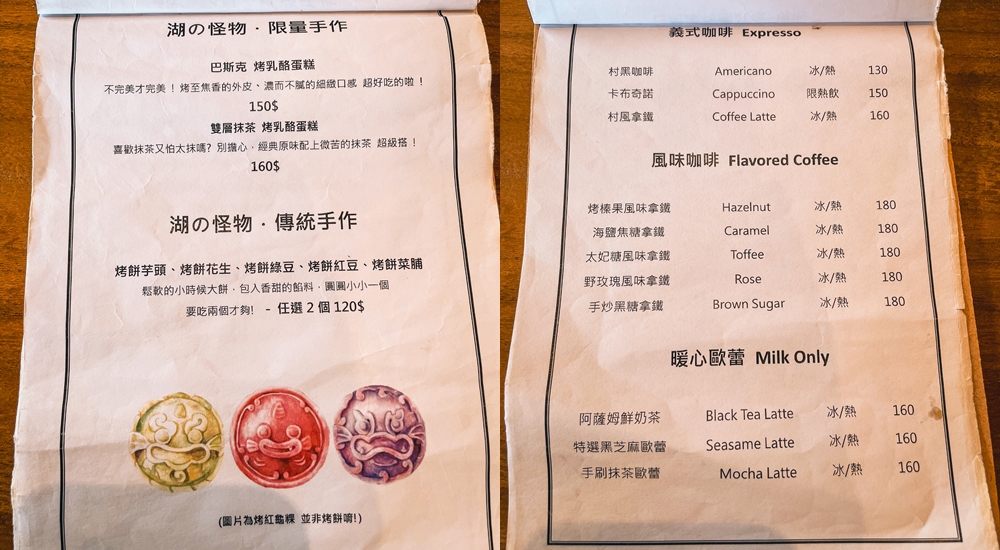 湖の怪物．限量手作
巴斯克 烤乳酪蛋糕
不完美才完美！烤至焦香的外皮、濃而不膩的細緻口感 超好吃的啦！
150$
雙層抹茶 烤乳酪蛋糕
喜歡抹茶又怕太抹嗎? 別擔心，經典原味配上微苦的抹茶 超級搭！
160$
湖の怪物．傳統手作
烤餅芋頭、烤餅花生、烤餅綠豆、烤餅紅豆、烤餅菜脯
鬆軟的小時候大餅，包入香甜的餡料，圓圓小小一個
要吃兩個才夠! - 任選 2 個 120$
(圖片為烤紅龜粿 並非烤餅唷!)
義式咖啡 Expresso
村黑咖啡 Americano 冰/熱 130
卡布奇諾 Cappuccino 限熱飲 150
村風拿鐵 Coffee Latte 冰/熱 160
風味咖啡 Flavored Coffee
烤榛果風味拿鐵 Hazelnut 冰/熱 180
海鹽焦糖拿鐵 Caramel 冰/熱 180
太妃糖風味拿鐵 Toffee 冰/熱 180
野玫瑰風味拿鐵 Rose 冰/熱 180
手炒黑糖拿鐵 Brown Sugar 冰/熱 180
暖心歐蕾 Milk Only
阿薩姆鮮奶茶 Black Tea Latte 冰/熱 160
特選黑芝麻歐蕾 Seasame Latte 冰/熱 160
手刷抹茶歐蕾 Mocha Latte 冰/熱 160